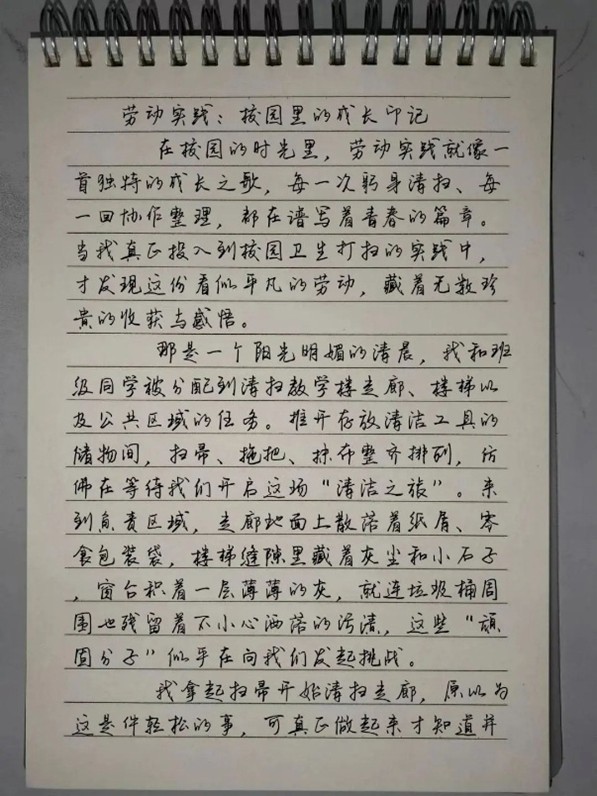 劳动实践：校园里的成长印记
在校园的时光里，劳动实践就像一
首独特的成长之歌，每一次躬身清扫、每
一回协作整理，都在谱写着青春的篇章。
当我真正投入到校园卫生打扫的实践中，
才发现这份看似平凡的劳动，藏着无数珍
贵的收获与感悟。
那是一个阳光明媚的清晨，我和班
级同学被分配到清扫教学楼走廊、楼梯以
及公共区域的任务。推开存放清洁工具的
储物间，扫帚、拖把、抹布整齐排列，仿
佛在等待我们开启这场“清洁之旅”。来
到负责区域，走廊地面上散落着纸屑、零
食包装袋，楼梯缝隙里藏着灰尘和小石子
，窗台积着一层薄薄的灰，就连垃圾桶周
围也残留着不小心洒落的污渍，这些“顽
固分子”似乎在向我们发起挑战。
我拿起扫帚开始清扫走廊，原以为
这是件轻松的事，可真正做起来才知道并